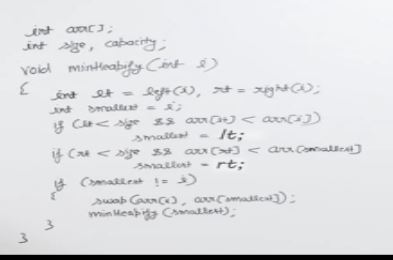 int arr[];
int size, capacity;
void minHeapify(int i)
{
int lt = left(i), rt = right(i);
int smallest = i;
if (lt < size && arr[lt] < arr[i])
smallest = lt;
if (rt < size && arr[rt] < arr[smallest]
smallest = rt;
if (smallest != i)
{
swap(arr[i], arr[smallest]);
minHeapify(smallest);
}
}